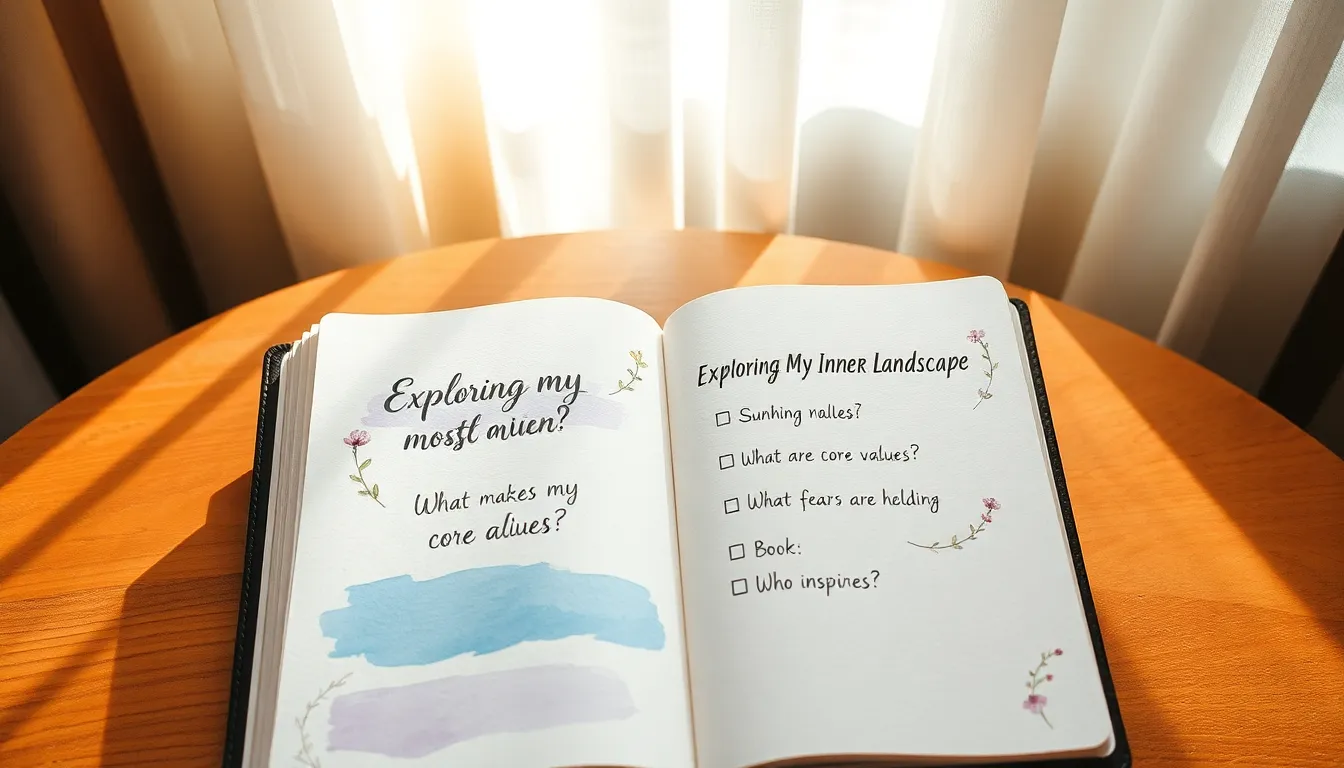 Exploring my
most aiuen?
What makes my
core aliues?
Exploring My Inner Landscape
Sunhing nalles?
What are core values?
What fears are helding
Book:
Who inspines?